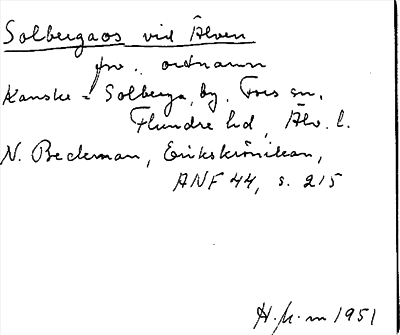 Solbergaos vid Älven
fsv. ortnamn
Kanske = Solberga, by, Fors sn,
Flundre hd, Älv. l.
N. Beckman, Erikskrönikan,
ANF 44, s. 215
1951